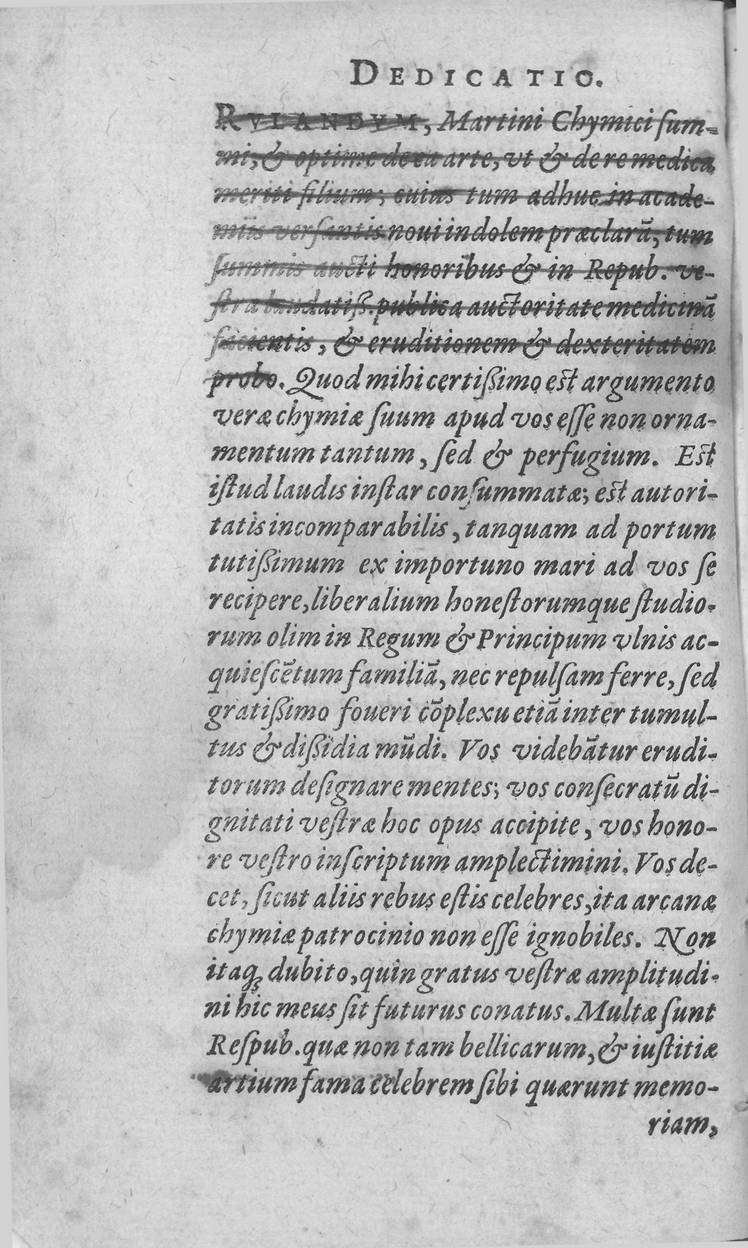 DEDICATIO.
RVLANDVM, Martini Chymici sum-
mi, & optime de ea arte, vt & de re medica
meriti filium; cuius tum adhuc in acade-
miis versantis noui indolem præclarā, tum
summis aucti honoribus & in Repub. ve-
stra laudatiß. publica auctoritate medicinā
facientis, & eruditionem & dexteritatem
probo. Quod mihi certißimo est argumento
veræ chymiæ suum apud vos esse non orna-
mentum tantum, sed & perfugium. Est
istud laudis instar consummatæ; est autori-
tatis incomparabilis, tanquam ad portum
tutißimum ex importuno mari ad vos se
recipere, liberalium honestorumque studio-
rum olim in Regum & Principum vlnis ac-
quiescētum familiā, nec repulsam ferre, sed
gratißimo foueri cōplexu etiā inter tumul-
tus & dißidia mūdi. Vos videbātur erudi-
torum designare mentes; vos consecratū di-
gnitati vestræ hoc opus accipite, vos hono-
re vestro inscriptum amplectimini. Vos de-
cet, sicut aliis rebus estis celebres, ita arcanæ
chymiæ patrocinio non esse ignobiles. Non
itaq; dubito, quin gratus vestræ amplitudi-
ni hic meus sit futurus conatus. Multæ sunt
Respub. quæ non tam bellicarum, & iustitiæ
artium fama celebrem sibi quærunt memo-
riam,